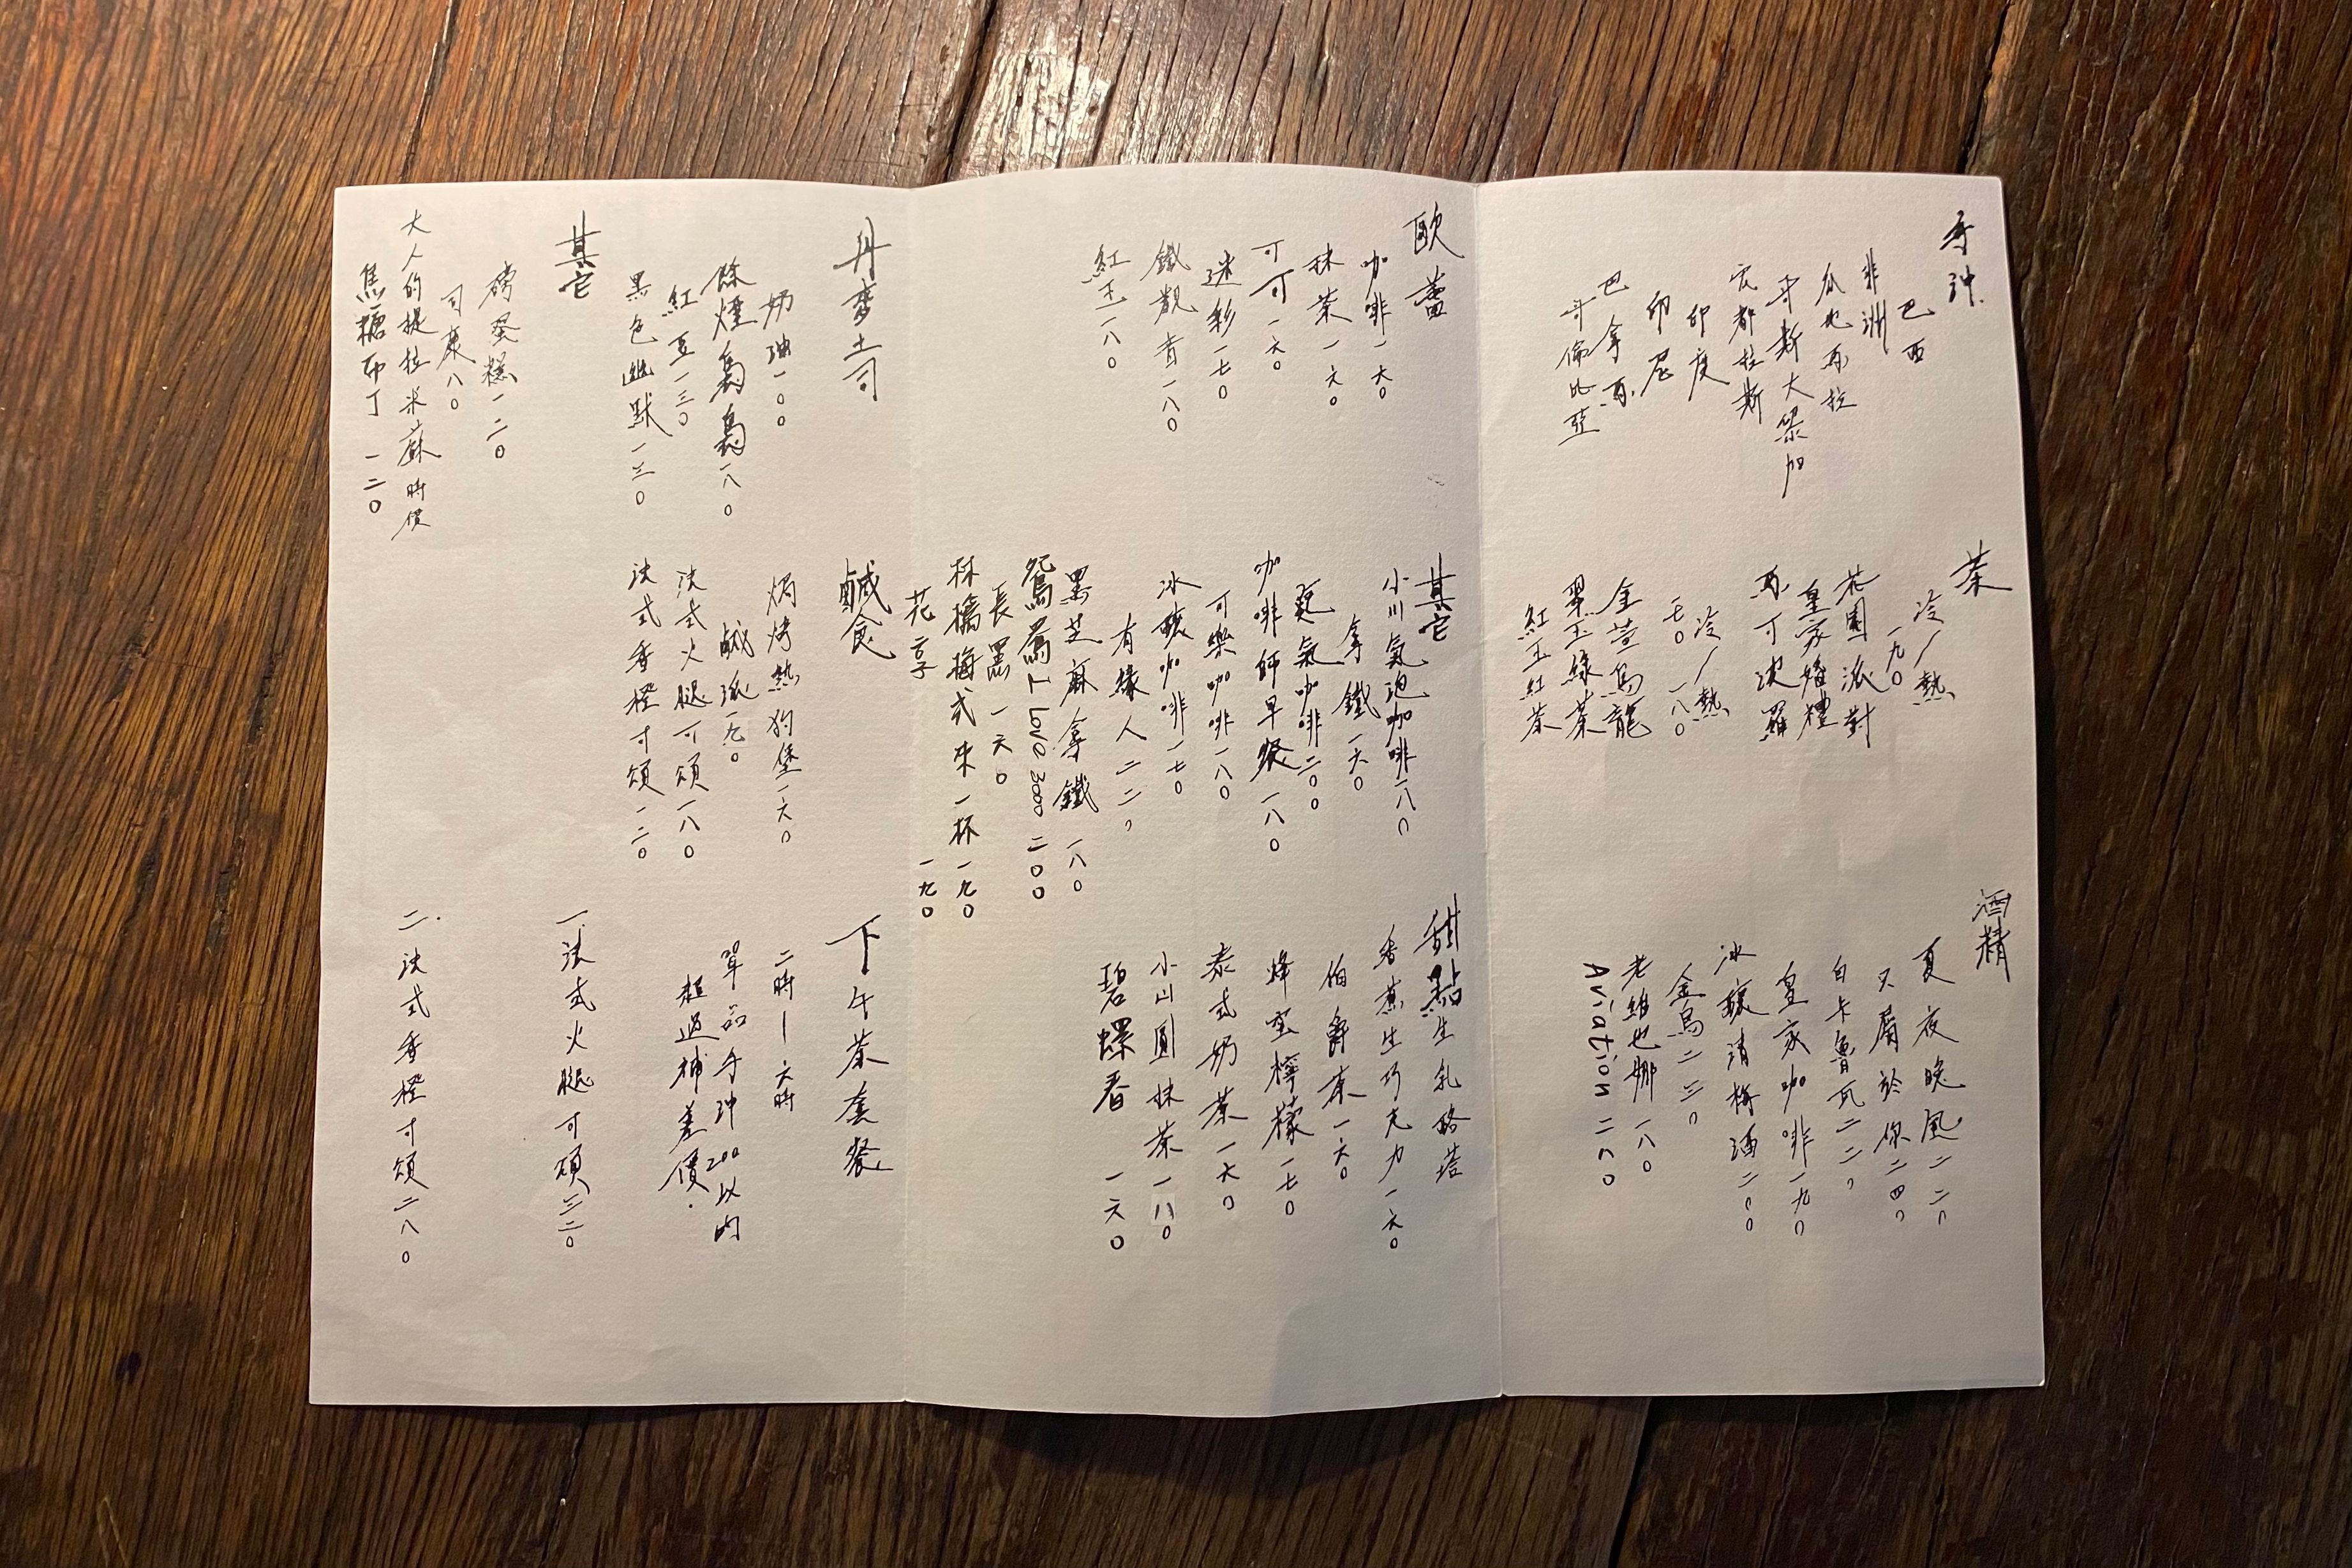 手沖
巴西
非洲
瓜地馬拉
哥斯大黎加
宏都拉斯
印度
印尼
巴拿馬
哥倫比亞
茶
冷/熱
一九〇
花園派對
皇家婚禮
馬可波羅
冷/熱
一七〇 一八〇
金萱烏龍
翠玉綠茶
紅玉紅茶
酒精
夏夜晚風二二〇
又屬於你二四〇
白卡魯瓦二二〇
皇家咖啡一九〇
冰釀清梅酒二〇〇
金烏二三〇
老維也娜一八〇
Aviation
歐蕾
咖啡一六〇
抹茶一六〇
可可一六〇
迷彩一七〇
鐵觀音一八〇
紅玉一八〇
其它
小川氣泡咖啡一八〇
拿鐵一六〇
氮氣咖啡二〇〇
咖啡師早餐一八〇
可樂咖啡一八〇
冰釀咖啡一七〇
有緣人二二〇
黑芝麻拿鐵一八〇
鴛鴦I Love 3000 二〇〇
長黑一六〇
林檎梅式來一杯一九〇
花享一九〇
甜點生乳酪塔
香蕉生巧克力一六〇
伯爵茶一六〇
蜂蜜檸檬一七〇
泰式奶茶一六〇
小山圓抹茶一八〇
碧螺春一六〇
丹麥土司
奶油一〇〇
除煙島島一八〇
紅豆一三〇
黑色幽默一三〇
其它
磅蛋糕一二〇
司康八〇
大人的提拉米蘇時價
焦糖布丁一二〇
鹹食
焗烤熱狗堡一六〇
鹹派一九〇
法式火腿可頌一八〇
法式香橙可頌一二〇
下午茶套餐
二時—六時
單品手沖200以內
超過補差價.
一.法式火腿可頌三二〇
二.法式香橙可頌二八〇